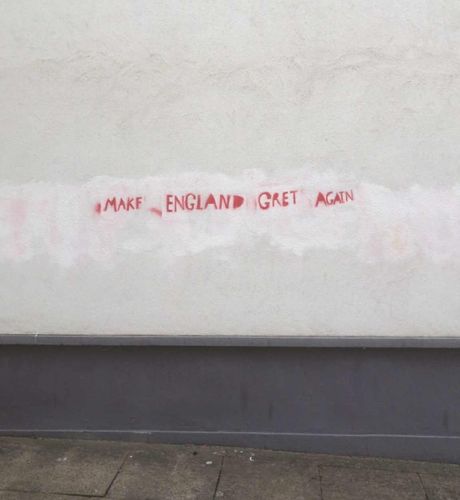 MAKE ENGLAND GRET AGAIN